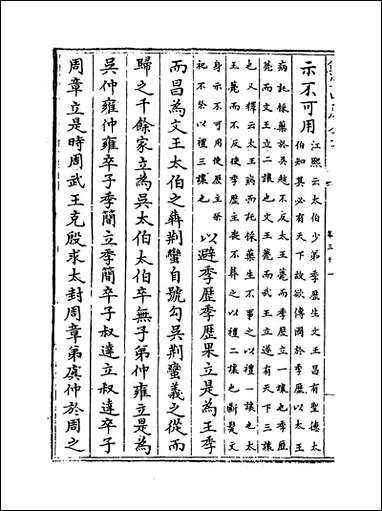 示不可用
江熙云太伯少弟季歷生文王昌有聖德太
伯知其必有天下故欲傳國於季歷以太王
病託採藥於吳越不反太王薨而季歷立一讓也季歷
薨而文王立二讓也文王薨而武王立遂有天下三讓
也又釋云太王病而託採藥生不事之以禮一讓也太
王薨而不反使季歷主喪不葬之以禮二讓也斷髮文
身示不可用使歷主祭
祀不祭以禮三讓也
以避季歷季歷果立是為王季
而昌為文王太伯之犇荊蠻自號勾吳荊蠻義之從而
歸之千餘家立為吳太伯太伯卒無子弟仲雍立是為
吳仲雍仲雍卒子季簡立季簡卒子叔達立叔達卒子
周章立是時周武王克殷求太封周章弟虞仲於周之